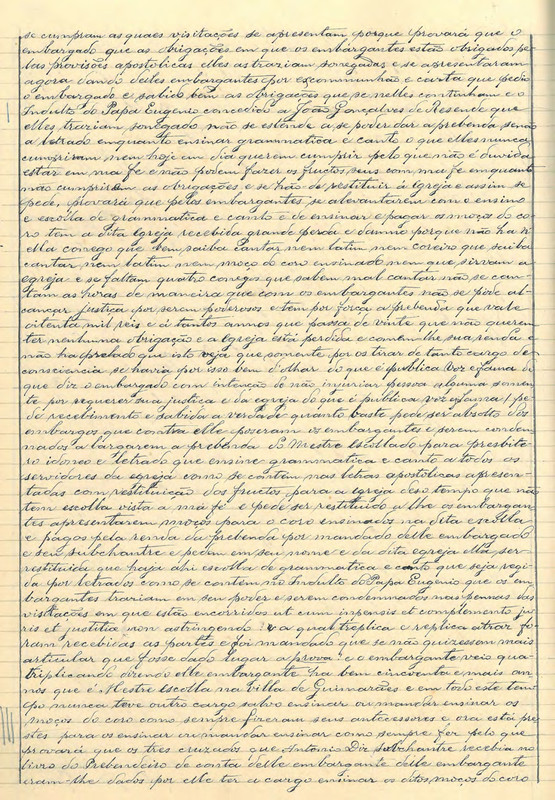 se cumpram as quaes visitações se apresentam porque provará que o
embargado que as obrigações em que os embargantes estão obrigados pe-
las provisões apostolicas elles as trariam sonegadas e se apresentaram
agora dando delles embargantes por excommunhão e carta que pediu
o embargado e sabido bem as obrigações que se nelles continham e o
Indulto do Papa Eugenio concedido a João Gonçalves de Resende que
elles trariam sonegado não se estende a se poder dar a prebenda senão
a letrado emquanto ensinar grammatica e canto o que elles nunca
cumpriram nem hoje em dia querem cumprir pelo que não é duvida
estar em má fé e não podem fazer os fructos seus com má fé emquanto
não cumprirem as obrigações e se hão de restituir á Igreja e assim se
pede, provará que pelos embargantes se alevantarem com o ensino
e escolla de grammatica e canto e de ensinar e pagar os moços do co-
ro tem a dita Igreja recebida grande perda e damno porque não ha n'
ella conego que bem saiba cantar nem latim nem coreiro que saiba
cantar nem latim nem moço do coro ensinado nem que sirvam a
egreja e se faltam quatro conegos que sabem mal cantar não se can-
tam as horas de maneira que com os embargantes não se pode al-
cançar justiça por serem poderosos e tem por força a prebenda que vale
oitenta mil reis e á tantos annos que passa de vinte que não querem
ter nenhuma obrigação e a Igreja está perdida e comem-lhe sua renda e
não ha prelado que isto veja que somente por os tirar de tanto cargo de
consciencia se havia por isso bem d'olhar do que é publica voz e fama do
que diz o embargado com intenção de não injuriar pessoa alguma somen-
te por requerer sua justiça e da egreja do que é publica voz e fama / pe-
de recebimento e sabida a verdade quanto baste pede ser absolto dos
embargos que contra elle poseram os embargantes e serem conden-
nados a largarem a prebenda do Mestre Escollado para presbite-
ro idoneo e letrado que ensine grammatica e canto a todos os
servidores da egreja como se contem nas letras apostolicas apresen-
tadas com restituição dos fructos para a egreja deso tempo que não
tem escolla vista a má fé e pede ser restituido a lhe os embargan-
tes apresentarem moços para o coro ensinados na dita escolla
e pagos pela renda da prebenda por mandado delle embargado
e seu subchantre e pedem em seu nome e da dita egreja ella ser
restituida que haja ahi escolla de grammatica e canto que seja regi-
da por letrados como se contem no Indulto do Papa Eugenio que os em-
bargantes trariam em seu poder e serem condemnados nas pennas das
visitações em que estão encorridos ut cum inpensis et complemento ju-
ris et justitia non astringendo &ª a qual treplica e replica atraz fo-
ram recebidas as partes e foi mandado que se não quizessem mais
articular que fosse dado lugar á prova: e o embargante veio qua-
triplicando dizendo elle embargante ha bem cincoenta e mais an-
nos que é Mestre escolla na Villa de Guimarães e em todo este tem-
po nunca teve outro cargo salvo ensinar ou mandar ensinar os
moços do coro como sempre fizeram seus antecessores e ora está pre-
stes para os ensinar ou mandar ensinar como sempre fez pelo que
provará que os tres cruzados que Antonio Diz subchantre recebia no
livro do Prebendeiro de conta delle embargante delle embargante
eram-lhe dados por elle ter a cargo ensinar os ditos moços do coro